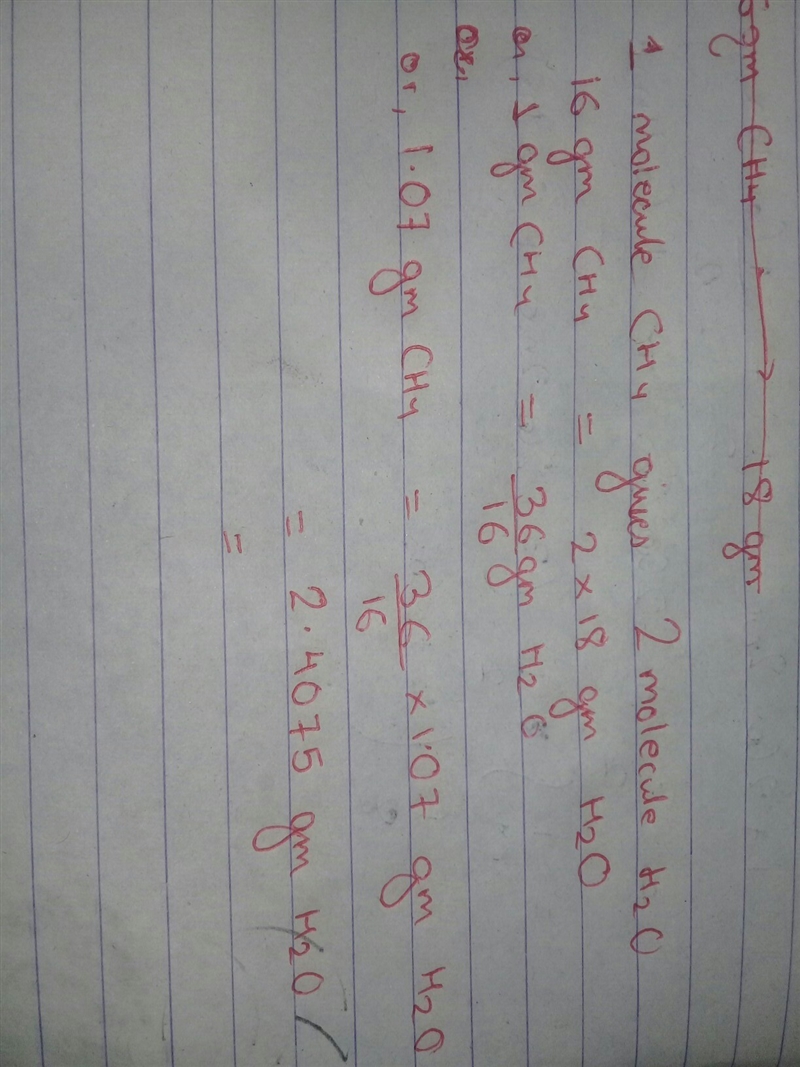 gm CH4 → 18 gm
1 molecule CH4 gives 2 molecule H2O
16 gm CH4 = 2 × 18 gm H2O
or, 1 gm CH4 = 36/16 gm H2O
or,
or, 1.07 gm CH4 = 36/16 × 1.07 gm H2O
= 2.4075 gm H2O
=